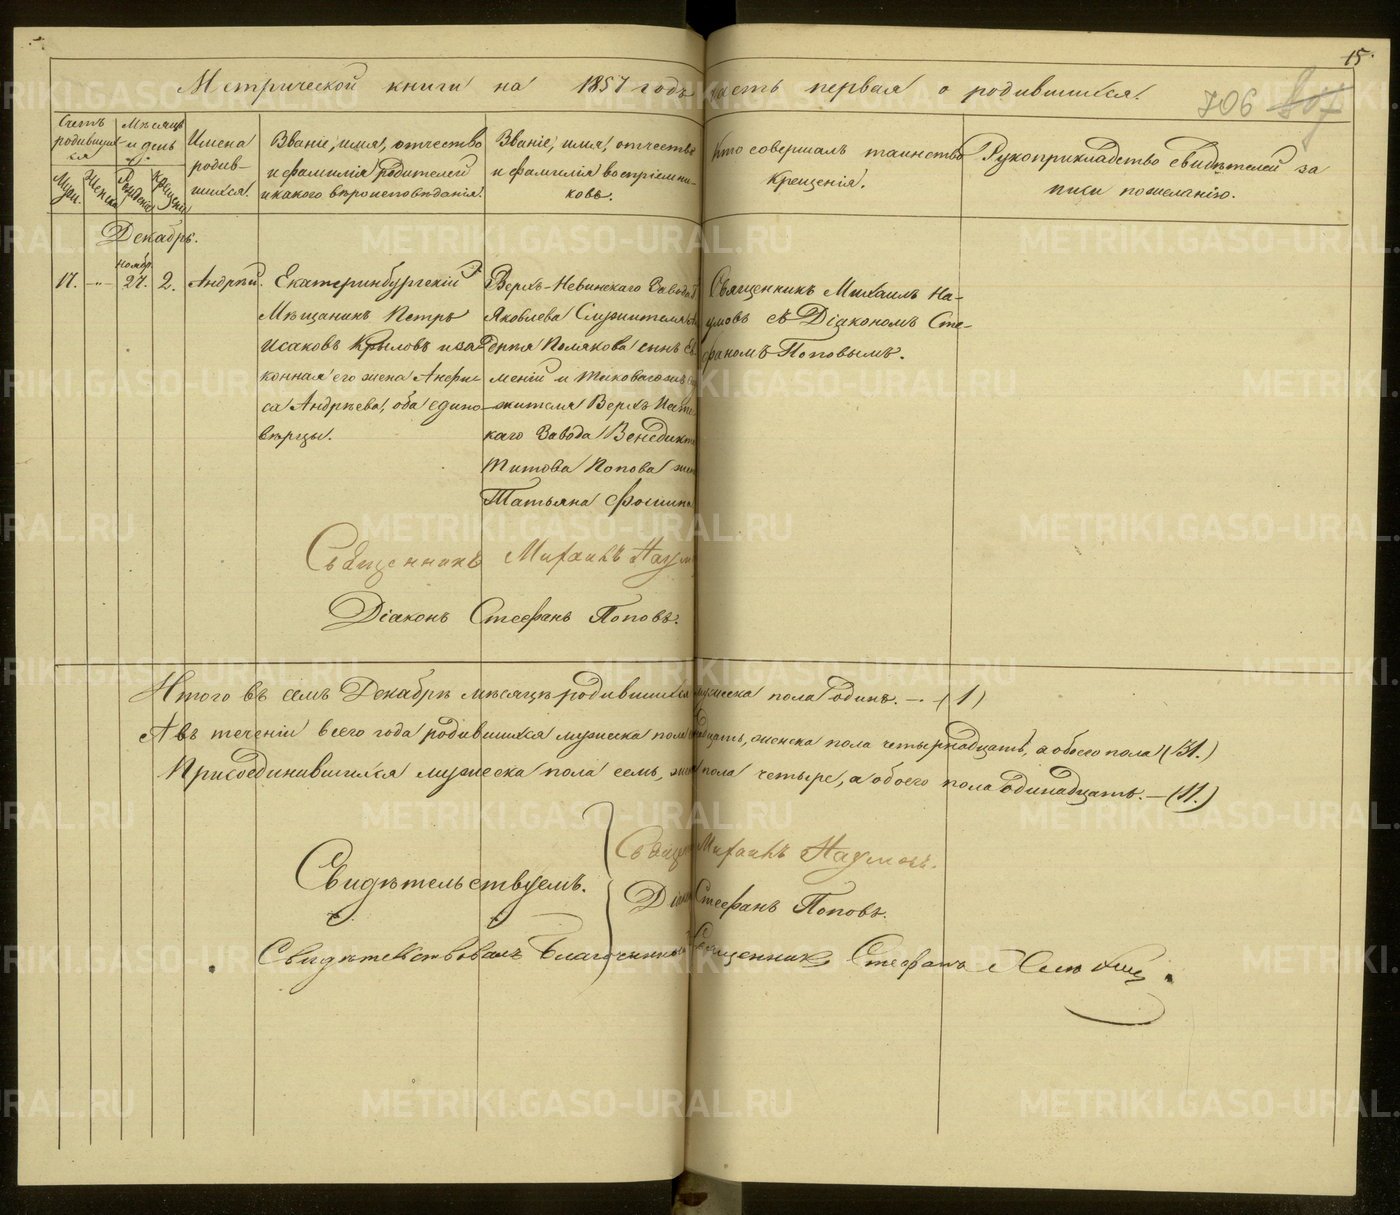 15.
Метрической книги на 1857 годъ часть первая о родившихся.
706 807
Счетъ родившихся
Мужи. Женска
Мѣсяцъ и день
Рожденія Крещенія
Имена родив-
шихся.
Званіе, имя, отчество
и фамилія родителей
и какого вѣроисповѣданія.
Званіе, имя, отчество
и фамилія воспріемни-
ковъ.
Кто совершалъ таинство
Крещенія.
Рукоприкладство свидѣтелей за
писи по желанію.
Декабрь.
17. -"- Ноябр. 27. 2. Андрѣй.
Екатеринбургскій
Мѣщанинъ Петръ
Исаковъ Крыловъ и за
конная его жена Анфи
са Андрѣева, оба едино
вѣрцы.
Верхъ-Невинскаго Завода
Яковлева Служителя
Полякова сынъ Ев
меній и таковаго же
жителя Верхъ Исет
каго Завода Венедикта
Титова Попова
Татьяна Фомина
Священникъ Михаилъ На-
умовъ съ Діакономъ Сте-
фаномъ Поповымъ.
Священникъ Михаилъ Наумо
Діаконъ Стефанъ Поповъ.
Итого въ семъ Декабрѣ мѣсяцѣ родившихся мужеска пола одинъ. — (1)
А въ теченіи всего года родившихся мужеска пола надцать, женска пола четырнадцать, а обоего пола (31.)
Присоединившихся мужеска пола семь, жен пола четыре, а обоего пола одинадцать. — (11.)
Свидѣтельствуемъ.
Священ Михаилъ Наумовъ.
Діакон Стефанъ Поповъ.
Свидѣтельствовалъ Благочинный Священникъ Стефанъ
METRIKI.GASO-URAL.RU